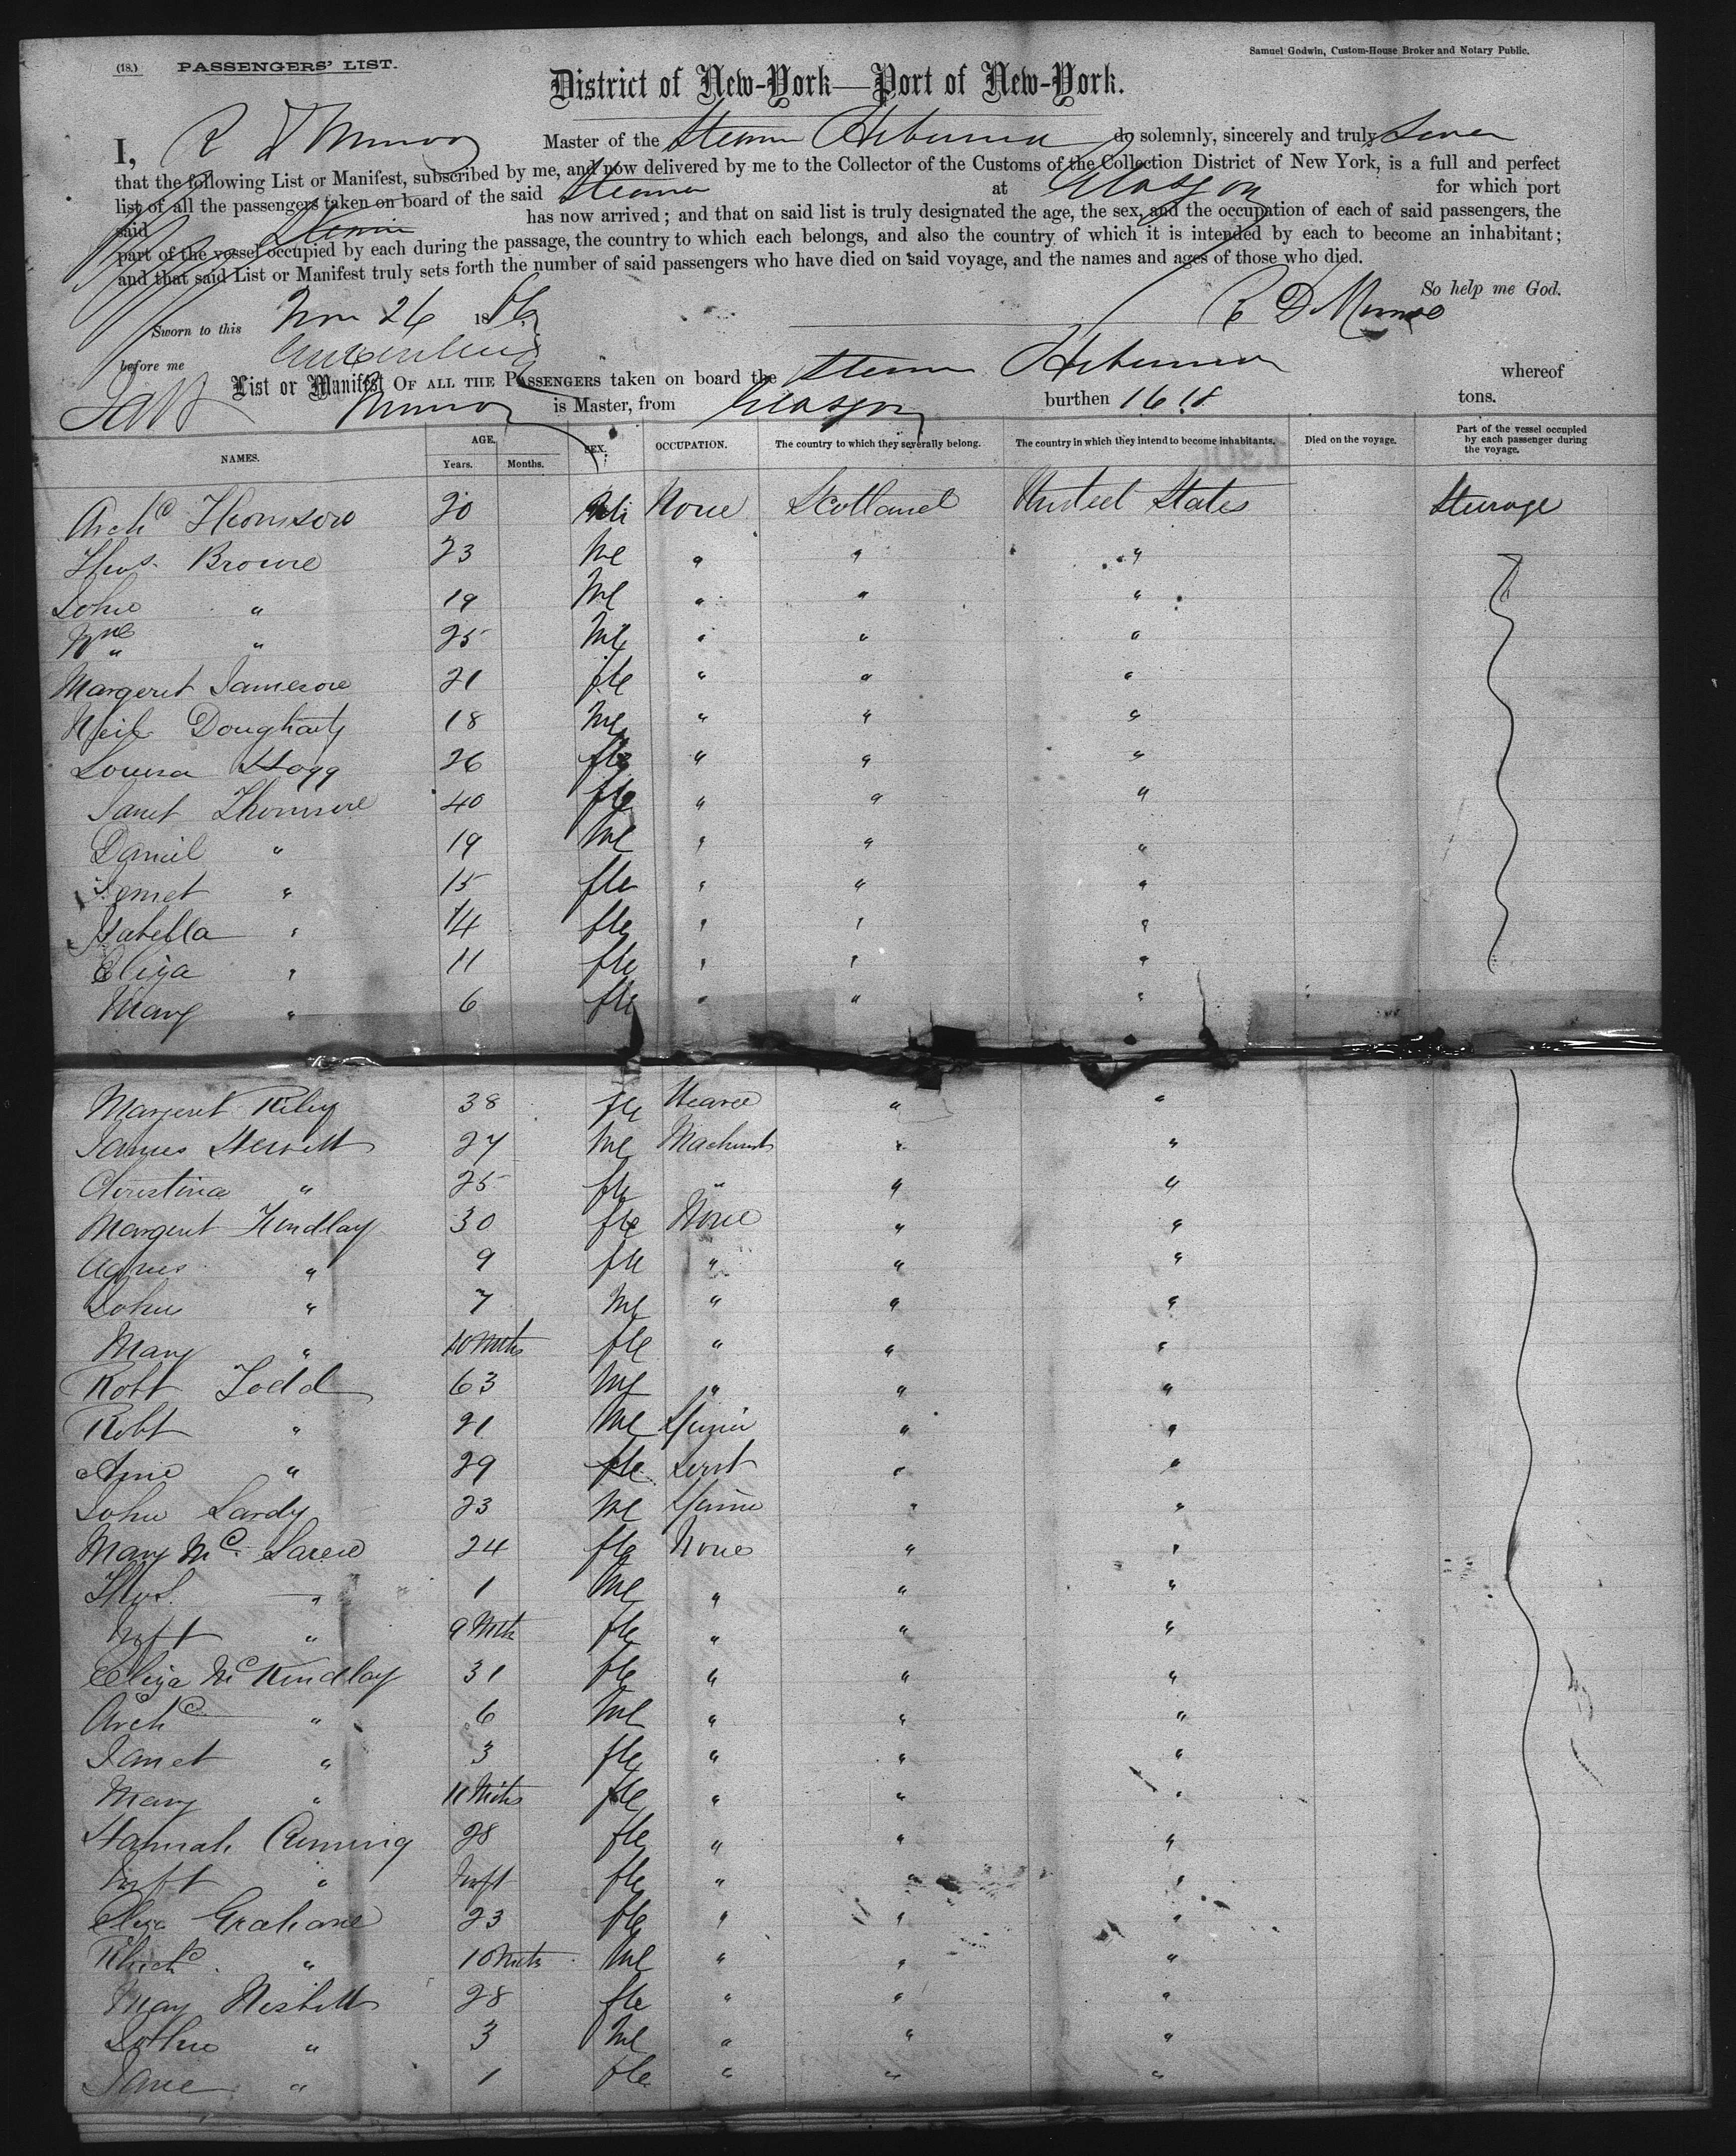 (18.) PASSENGERS' LIST.
Samuel Godwin, Custom-House Broker and Notary Public.
District of New-York—Port of New-York.
I, R D Munro Master of the Steam Hibernia do solemnly, sincerely and truly swear
that the following List or Manifest, subscribed by me, and now delivered by me to the Collector of the Customs of the Collection District of New York, is a full and perfect
list of all the passengers taken on board of the said Steamer at Glasgow for which port
said Steamer has now arrived; and that on said list is truly designated the age, the sex, and the occupation of each of said passengers, the
part of the vessel occupied by each during the passage, the country to which each belongs, and also the country of which it is intended by each to become an inhabitant;
and that said List or Manifest truly sets forth the number of said passengers who have died on said voyage, and the names and ages of those who died.
So help me God.
Sworn to this Nov 26 18
R D Munro
before me
List or Manifest OF ALL THE PASSENGERS taken on board the Steam Hibernia whereof
Munro is Master, from Glasgow burthen 1618 tons.
NAMES. AGE. Years. Months. SEX. OCCUPATION. The country to which they severally belong. The country in which they intend to become inhabitants. Died on the voyage. Part of the vessel occupied by each passenger during the voyage.
Archd Thomson 20 Ml None Scotland United States Steerage
Thos. Brown 23 Ml " " "
John " 19 Ml " " "
Wm " 25 Ml " " "
Margeret Jameson 21 fle " " "
Neil Dougharty 18 Ml " " "
Louisa Hogg 26 fle " " "
Janet Thomson 40 fle " " "
Daniel " 19 Ml " " "
Jennet " 15 fle " " "
Isabella " 14 fle " " "
Eliza " 11 fle " " "
Mary " 6 fle " " "
Margeret Riley 38 fle Weaver " "
James Hewitt 27 Ml Machinist " "
Christina " 25 fle " " "
Margeret Kindlay 30 fle None " "
Agnes " 9 fle " " "
John " 7 Ml " " "
Mary " 10 Mths fle " " "
Robt Todd 63 Ml " " "
Robt " 21 Ml " "
Ann " 29 fle Servt " "
John Lardy 23 Ml " "
Mary Mc Laren 24 fle None " "
Thos. " 1 Ml " " "
Inft " 9 Mths fle " " "
Eliza McKindlay 31 fle " " "
Archd " 6 Ml " " "
Janet " 3 fle " " "
Mary " 11 Mths fle " " "
Hannah Cuming 28 fle " " "
Inft " Inft fle " " "
Eliza Graham 23 fle " " "
Richd " 10 Mths Ml " " "
May Nesbitt 28 fle " " "
John " 3 Ml " " "
Jane " 1 fle " " "